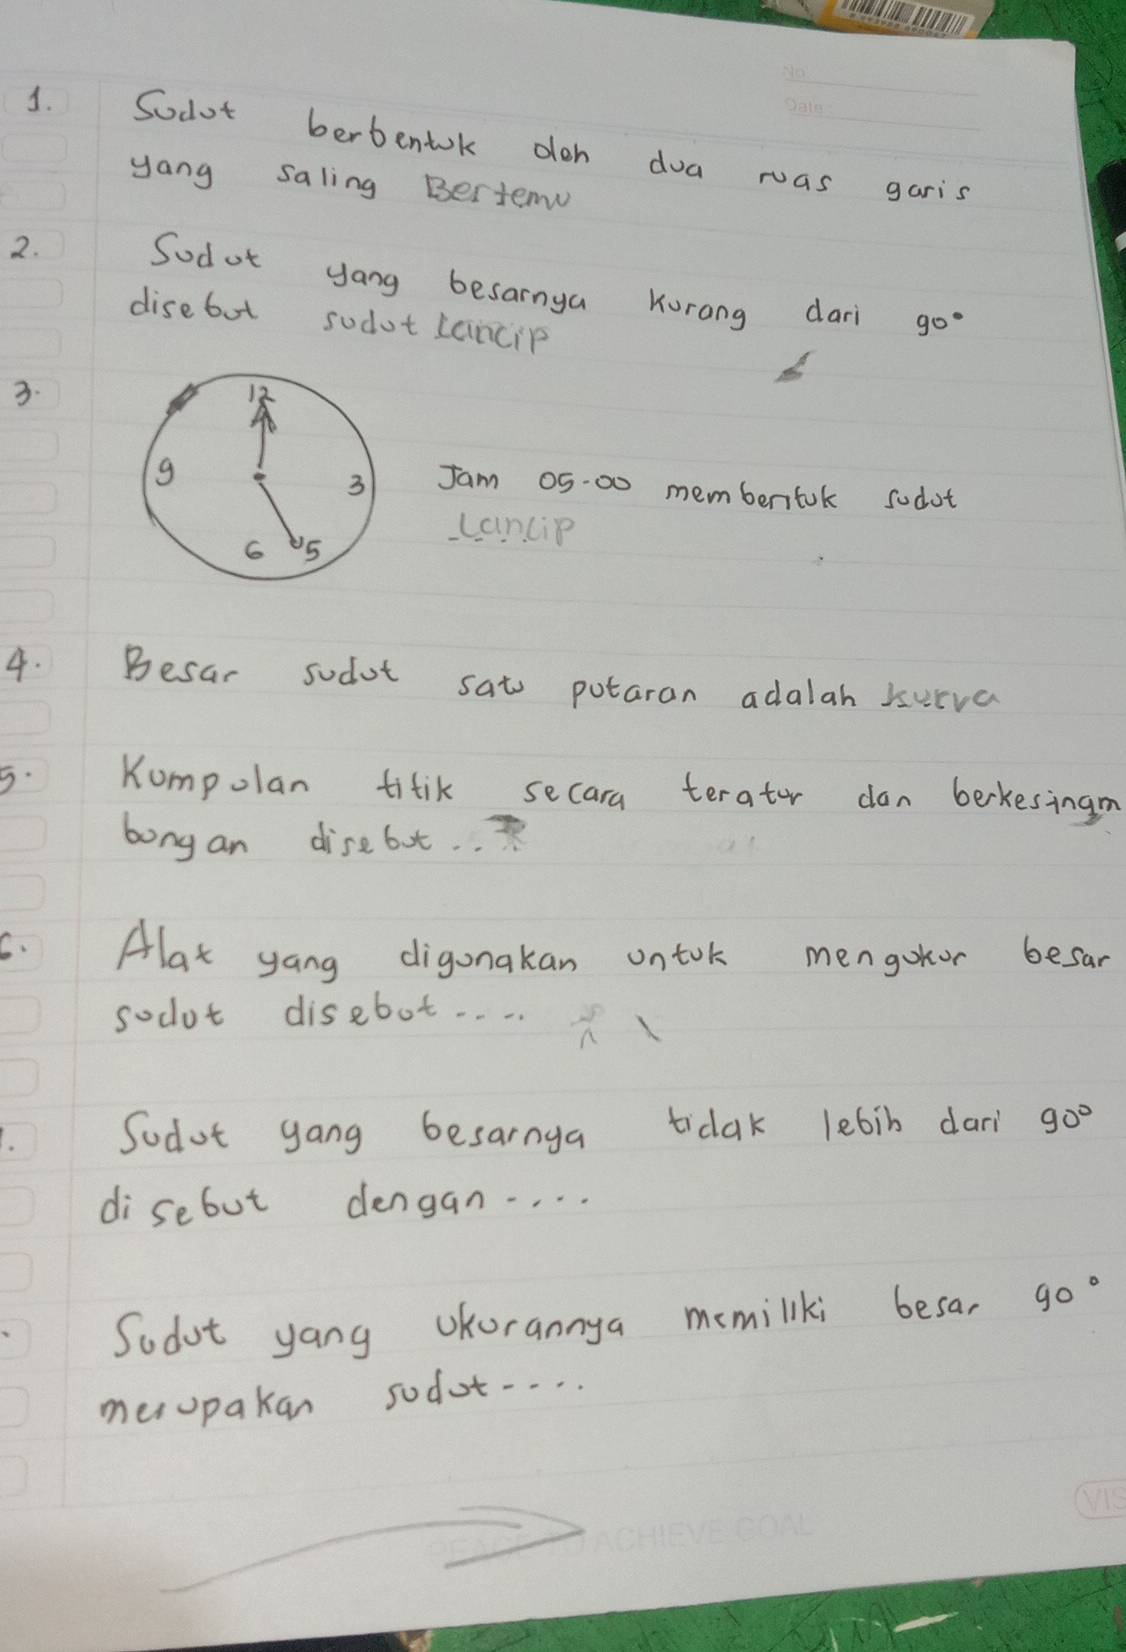 No
Date
1. Sudut berbentuk oleh dua ruas garis
yang saling Bertemu
2. Sudut yang besarnya kurang dari 90°
disebut sudut Lancip
3.
12
9
3
6 5
Jam 05.00 membentuk sudut
Lancip
4. Besar sudut satu putaran adalah kurva
5. Kumpulan titik secara teratur dan berkesinam
bungan disebut..
6. Alat yang digunakan untuk mengukur besar
sudut disebut....
Sudut yang besarnya tidak lebih dari 90°
disebut dengan....
Sudut yang ukurannya memiliki besar 90°
merupakan sudut....
VIS
PEACE TO ACHIEVE GOAL